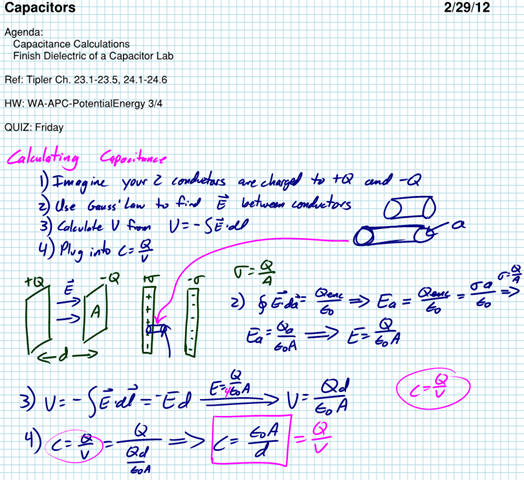 Capacitors 2/29/12
Agenda:
Capacitance Calculations
Finish Dielectric of a Capacitor Lab
Ref: Tipler Ch. 23.1-23.5, 24.1-24.6
HW: WA-APC-PotentialEnergy 3/4
QUIZ: Friday
Calculating Capacitance
1) Imagine your 2 conductors are charged to +Q and -Q
2) Use Gauss' Law to find E⃗ between conductors
3) Calculate V from V = -∫E⃗·dl
4) Plug into C = Q/V
a
+Q E⃗ -Q +σ -σ σ = Q/A
A
d
2) ∮E⃗·da⃗ = Qenc/ε₀ ⇒ Ea = Qenc/ε₀ = σa/ε₀ σ=Q/A ⇒
Ea = Qa/ε₀A ⇒ E = Q/ε₀A
3) V = -∫E⃗·dl⃗ = -Ed E=Q/ε₀A ⇒ V = Qd/ε₀A
C = Q/V
4) C = Q/V = Q/(Qd/ε₀A) ⇒ C = ε₀A/d = Q/V